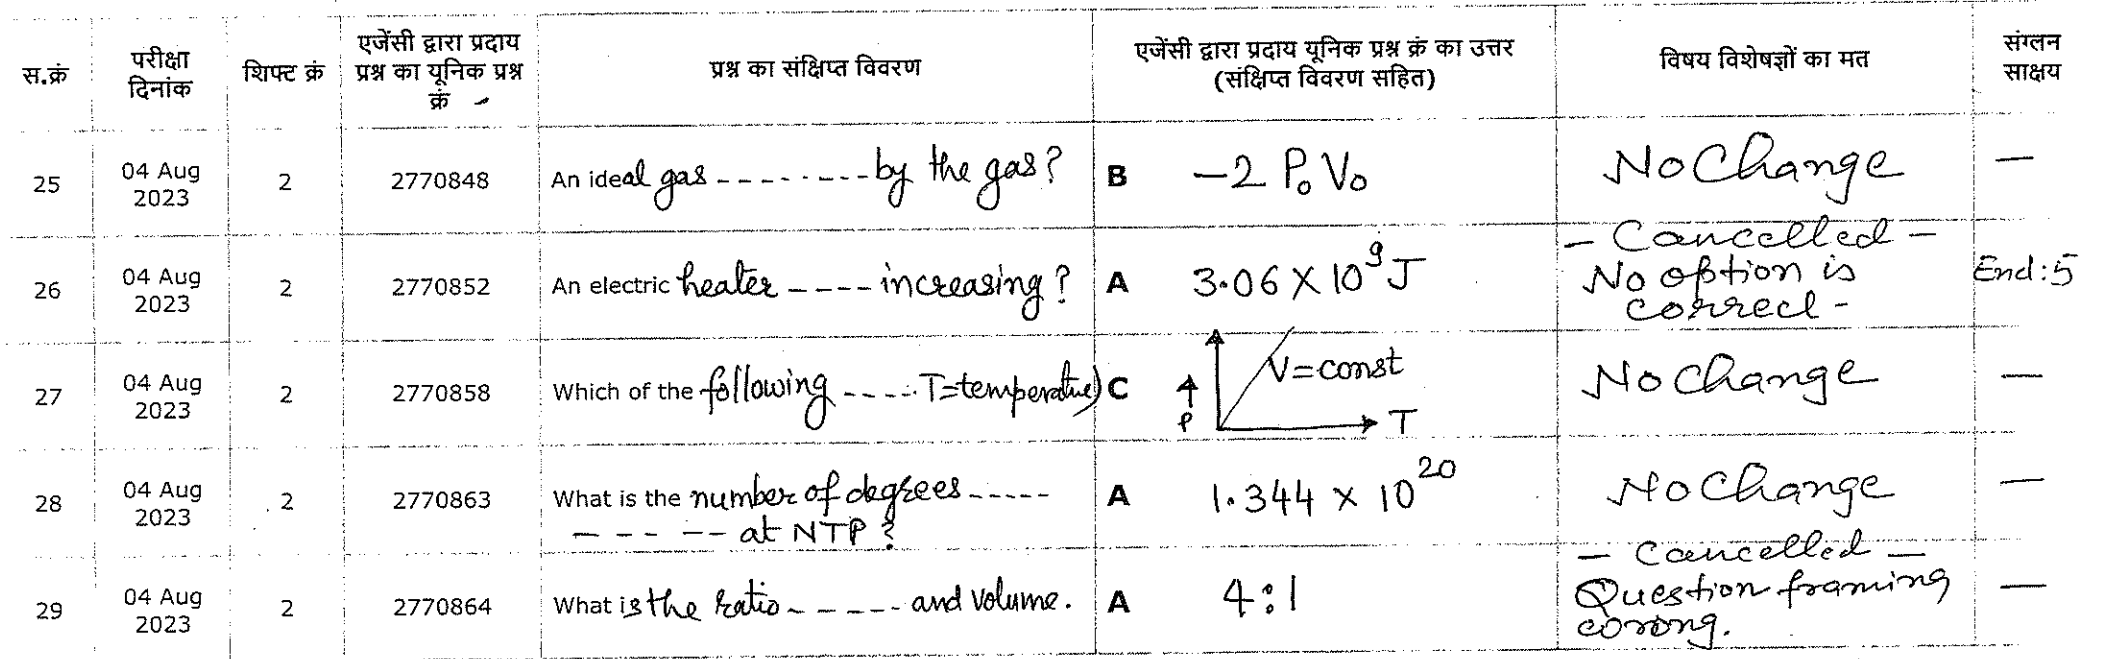 स.क्रं परीक्षा दिनांक शिफ्ट क्रं एजेंसी द्वारा प्रदाय प्रश्न का यूनिक प्रश्न क्रं प्रश्न का संक्षिप्त विवरण एजेंसी द्वारा प्रदाय यूनिक प्रश्न क्रं का उत्तर (संक्षिप्त विवरण सहित) विषय विशेषज्ञों का मत संग्लन साक्षय
25 04 Aug 2023 2 2770848 An ideal gas -------- by the gas? B -2 P₀ V₀ No Change —
26 04 Aug 2023 2 2770852 An electric heater ---- increasing? A 3.06 × 10⁹ J - Cancelled - No option is correct - End:5
27 04 Aug 2023 2 2770858 Which of the following ----- T=temperature) C P V=const T No Change —
28 04 Aug 2023 2 2770863 What is the number of degrees ----- ----- at NTP? A 1.344 × 10²⁰ No Change —
29 04 Aug 2023 2 2770864 What is the ratio ----- and volume. A 4:1 - Cancelled - Question framing worong. —